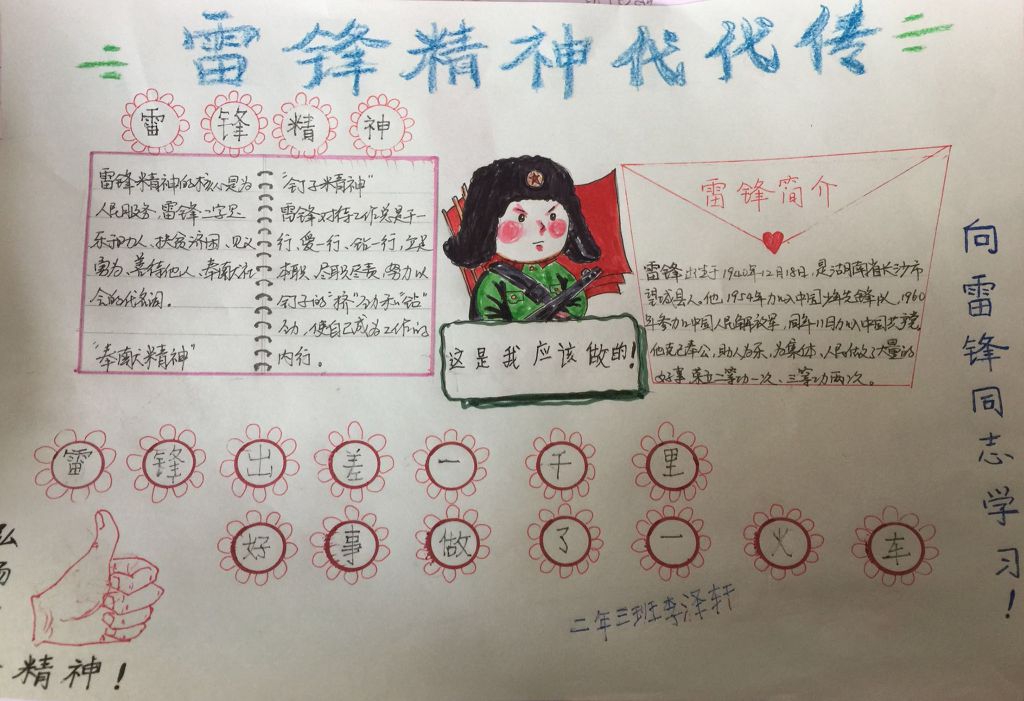 雷锋精神代代传
雷锋精神
雷锋精神的核心是为
人民服务,雷锋二字是
乐于助人、扶贫济困、见义
勇为、善待他人、奉献社
会的代名词。
"奉献精神"
"钉子精神"
雷锋对待工作总是干一
行、爱一行、钻一行,立足
本职、尽职尽责,努力以
钉子的"挤"劲和"钻"
劲,使自己成为工作的
内行。
这是我应该做的!
雷锋简介
雷锋出生于1940年12月18日,是湖南省长沙市
望城县人。他1954年加入中国少年先锋队,1960
年参加中国人民解放军,同年11月加入中国共产党
他克己奉公,助人为乐,为集体、人民做了大量的
好事,荣立二等功一次、三等功两次。
向雷锋同志学习!
雷锋出差一千里
好事做了一火车
弘扬
精神!
二年三班李泽轩